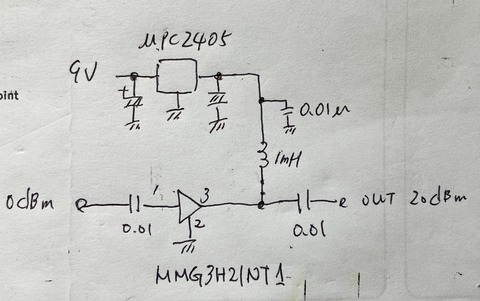 μPC2405
9V
+
oint
0.01μ
1mH
0dBm
1
3
2
OUT 20dBm
0.01
0.01
MMG3H21NT1